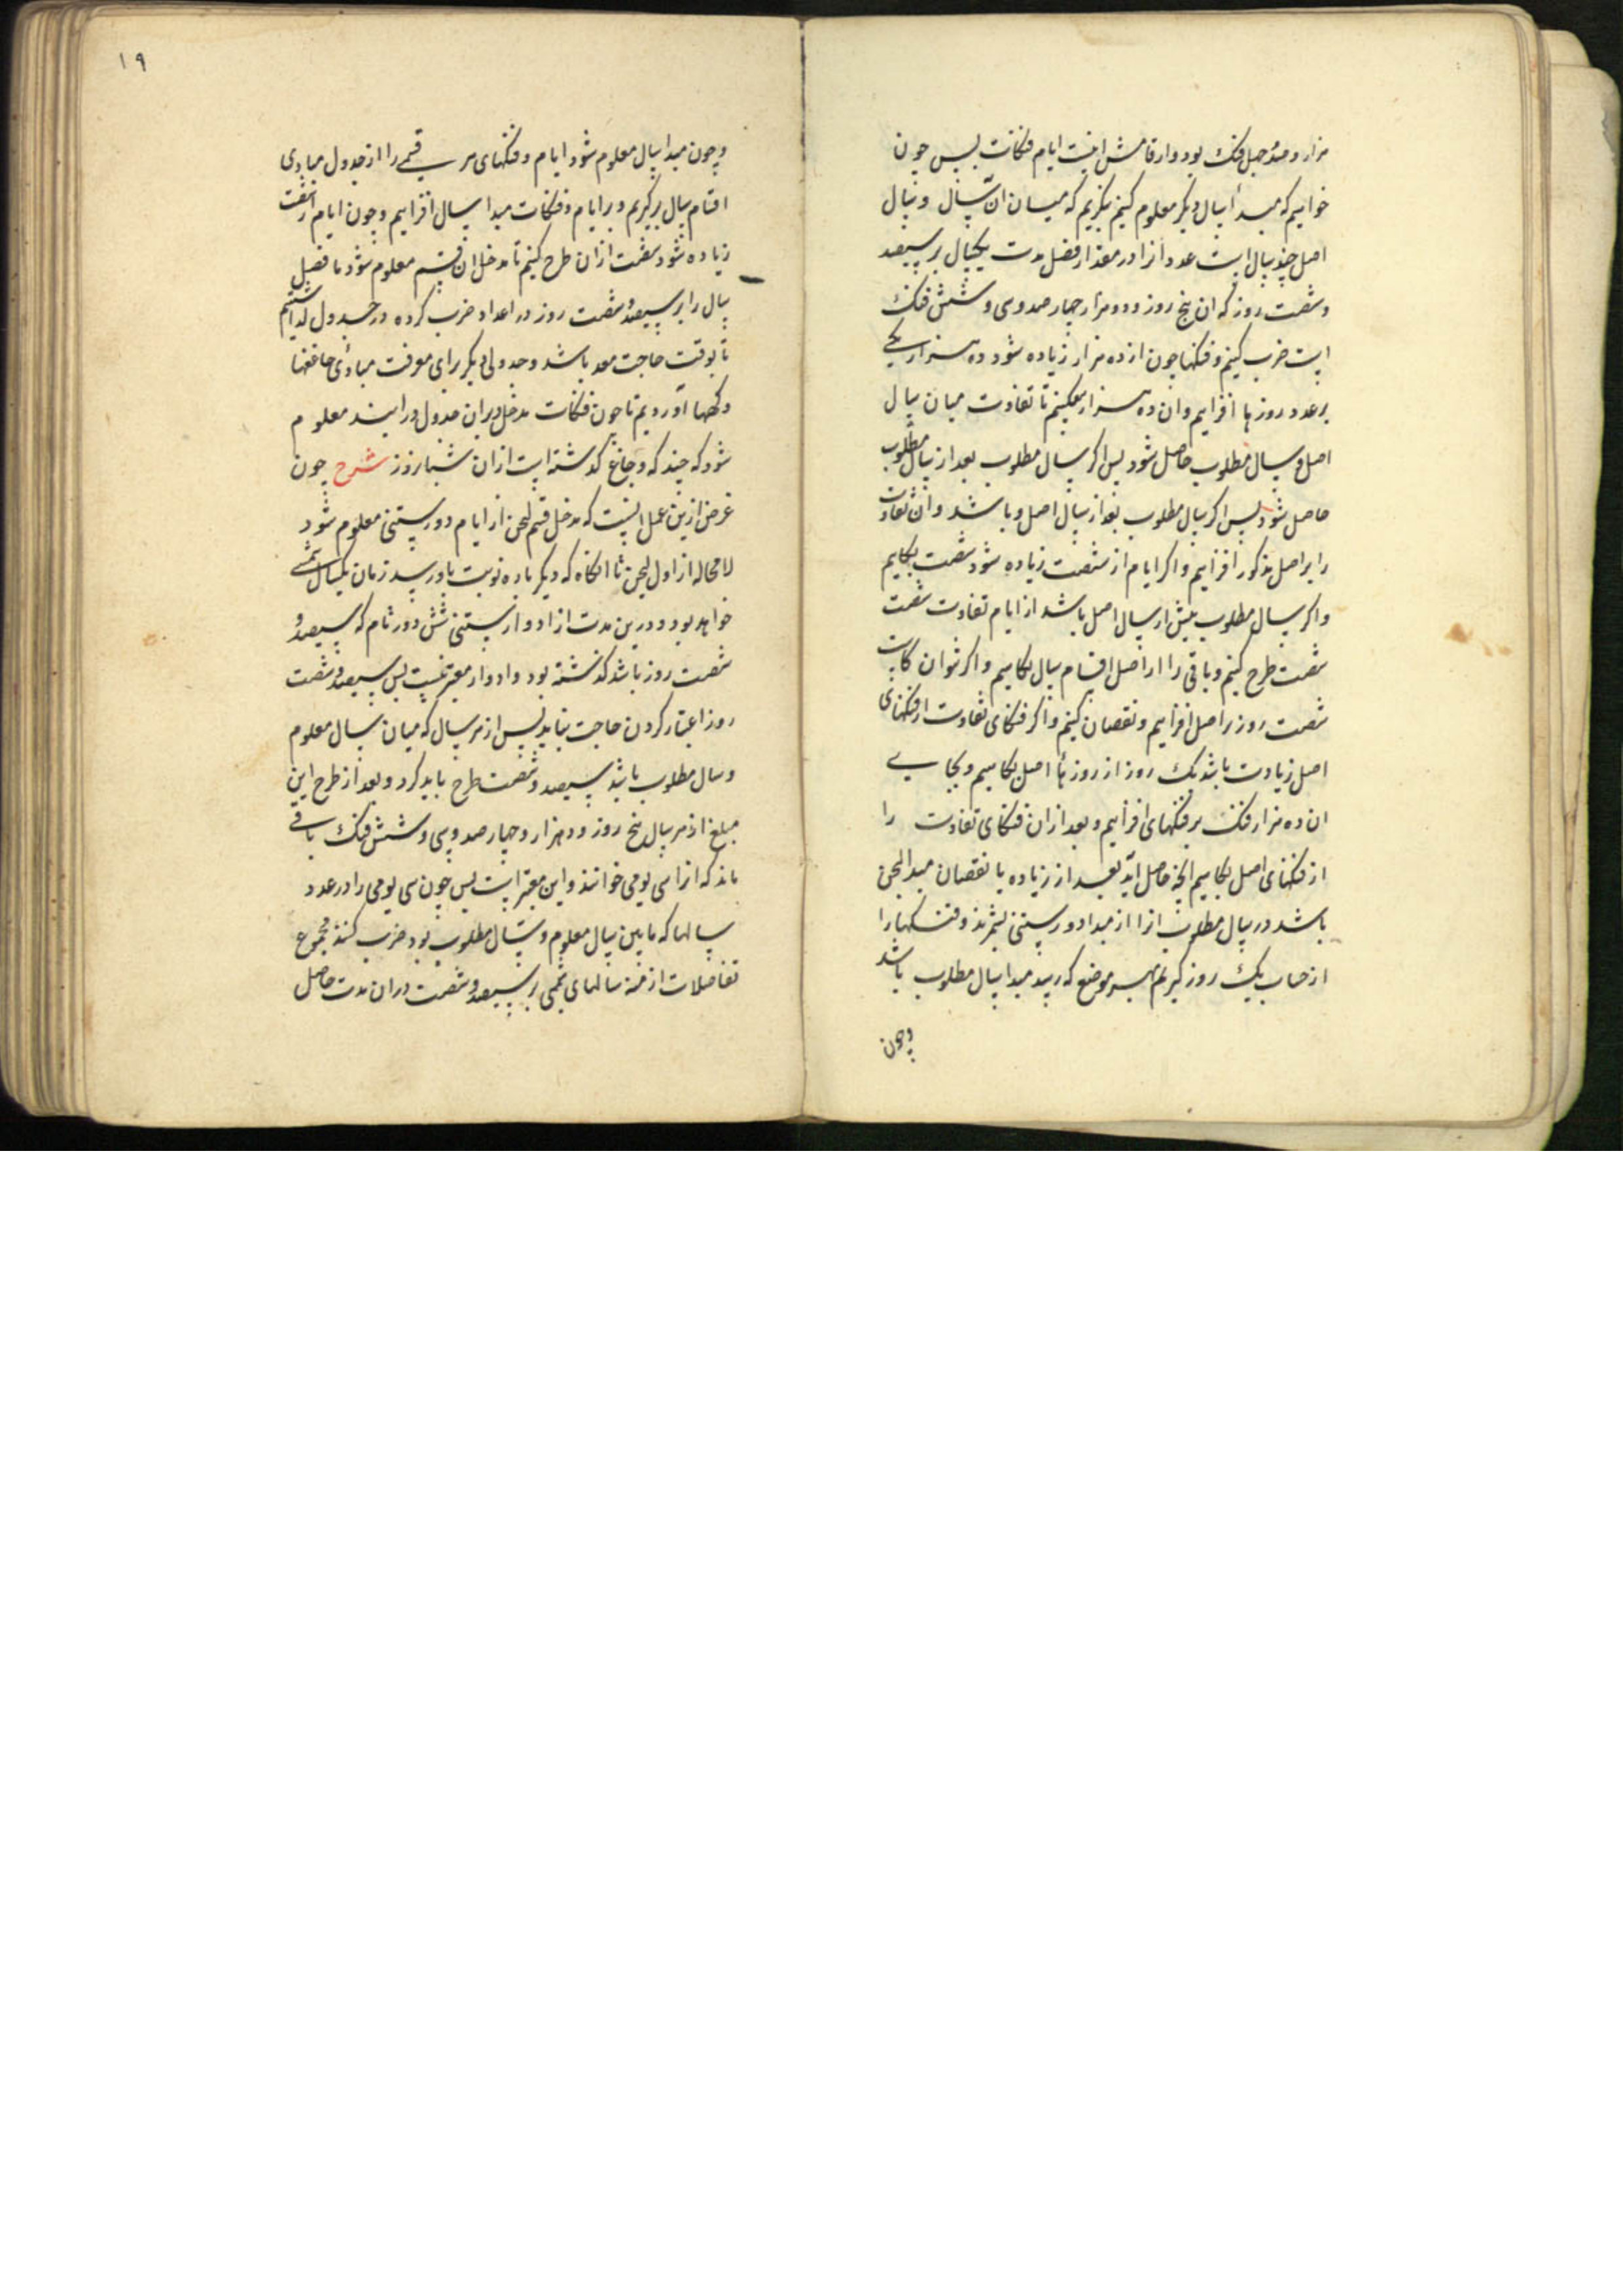 هزار و صد و چهل فنك بود و ارقامش اینست ایام فنکات پس چون
خواهیم که مبدأ سال دیکر معلوم کنیم بنکریم که میان آن سال و سال
اصل چند سال است عدد آنرا در مقدار فضل مدت یکسال بر سیصد
و شصت روز که آن پنج روز و دو هزار چهار صد و سی و شش فنك
است ضرب کنیم و فنکها چون از ده هزار زیاده شود ده هزار یکی
بر عدد روزها افزاییم و آن ده هزار بفکنیم تا تفاوت میان سال
اصل و سال مطلوب حاصل شود پس اکر سال مطلوب بعد از سال مطلوب
حاصل شود پس اکر سال مطلوب بعد از سال اصل و باشد و آن تفاوت
را بر اصل مذکور افزاییم و اکر ایام از شصت زیاده شود شصت بکاهیم
و اکر سال مطلوب پیش از سال اصل باشد از ایام تفاوت شصت
شصت طرح کنیم و باقی را از اصل اقسام سال بکاهیم و اکر نتوان کاست
شصت روز بر اصل افزاییم و نقصان کنیم و اکر فنکهای تفاوت از فنکهای
اصل زیادت باشد یك روز از روزها اصل بکاهیم و بجای
آن ده هزار فنك بر فنکهای افزاییم و بعد از آن فنکهای تفاوت را
از فنکهای اصل بکاهیم آنچه حاصل آید بعد از زیاده یا نقصان مبدا لیچن
باشد در سال مطلوب آنرا از مبدا دور ستنی بشمرند و فنکها را
از حساب یك روز کیریم بهر موضع که رسد مبدا سال مطلوب باشد
وچون
۱۹
وچون مبدا سال معلوم شود ایام و فنکهای هر قسمی را از جدول مبادی
اقسام سال برکیریم و بر ایام و فنکات مبدا سال افزاییم و چون ایام از شصت
زیاده شود شصت از آن طرح کنیم تا مدخل آن قسم معلوم شود ما فضل
سال را بر سیصد و شصت روز در اعداد ضرب کرده در جدول نهادیم
تا بوقت حاجت معد باشد و جدولی دیکر برای معرفت مبادی جاغها
و کهها آوردیم تا چون فنکات مدخل بر آن جدول در آیند معلوم
شود که چند که و جاغ کذشته است از آن شبانروز شرح چون
غرض ازین عمل اینست که مدخل قسم لیچن از ایام دور ستنی معلوم شود
لا محاله از اول لیچن تا آنکاه که دیکر باره نوبت باو رسد زمان یکسال شمسی
خواهد بود و درین مدت از ادوار ستنی شش دور تام که سیصد و
شصت روز باشد کذشته بود و ادوار معتبر نیست پس سیصد و شصت
روز اعتبار کردن حاجت نیاید پس از هر سال که میان سال معلوم
و سال مطلوب باشد سیصد و شصت طرح باید کرد و بعد از طرح این
مبلغ از هر سال پنج روز و دو هزار و چهار صد و سی و شش فنك باقی
ماند که آنرا سی یومی خوانند و این معتبر است پس چون سی یومی را در عدد
سالها که ما بین سال معلوم و سال مطلوب بود ضرب کنند مجموع
تفاضلات ازمنه سالهای شمسی بر سیصد و شصت در آن مدت حاصل